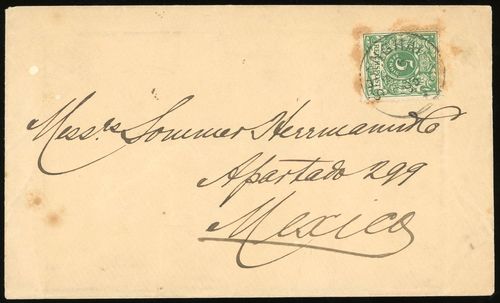 SHANGHAI
5
Messrs Sommer Herrmann & Co
Apartado 299
Mexico